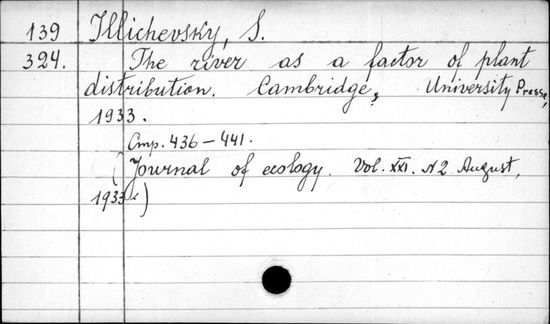 139 Illichevsky, S.
324. The river as a factor of plant
distribution. Cambridge, University Presse,
1933.
Стр. 436-441.
(Journal of ecology. Vol. XXI. N2 August,
1933.)